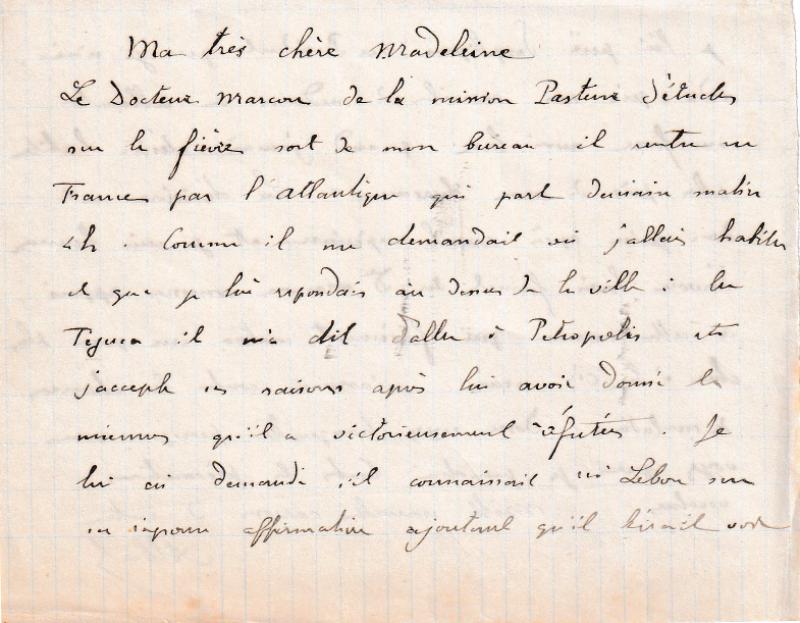 Ma très chère Madeleine
Le Docteur Marcou de la mission Pasteur d'études
sur la fièvre sort de mon bureau il rentre en
France par l'Atlantique qui part demain matin
4h. Comme il me demandait où j'allais habiter
et que je lui repondais au dessus de la ville à la
Tijuca il m'a dit d'aller à Petropolis et
j'accepte ses raisons après lui avoir donné les
miennes qu'il a victorieusement réfutées. Je
lui ai demandé s'il connaissait Lebon sur
sa réponse affirmative ajoutant qu'il irait voir